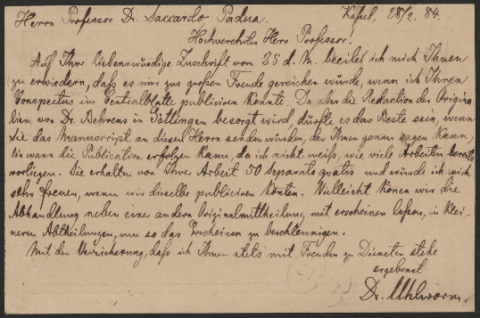 Herrn Professor Dr. Saccardo Padua. Kassel, 28/2. 84.
Hochverehrter Herr Professor!
Auf Ihre liebenswürdige Zuschrift vom 25 d. M. beeile ich mich Ihnen
zu erwiedern, dass es mir zur großen Freude gereichen würde, wenn ich Ihren
Conspectus im Centralblatte publiciren könnte. Da aber die Redaction der Origina
lien von Dr. Behrens in Göttingen besorgt wird, dürfte es das Beste sein, wenn
Sie das Manuscript an diesen Herrn senden würden, der Ihnen genau sagen kann,
bis wann die Publication erfolgen kann, da ich nicht weiß, wie viele Arbeiten bereits
vorliegen. Sie erhalten von Ihrer Arbeit 50 Separata gratis und würde ich mich
sehr freuen, wenn wir dieselbe publiciren könten. Vielleicht könen wir die
Abhandlung neben einer andern Originalmittheilung mit erscheinen lassen, in klei-
neren Abtheilungen, um so das Erscheinen zu beschleunigen.
Mit der Versicherung, dass ich Ihnen stets mit Freuden zu Diensten stehe
ergebenst
Dr. Uhlworm.